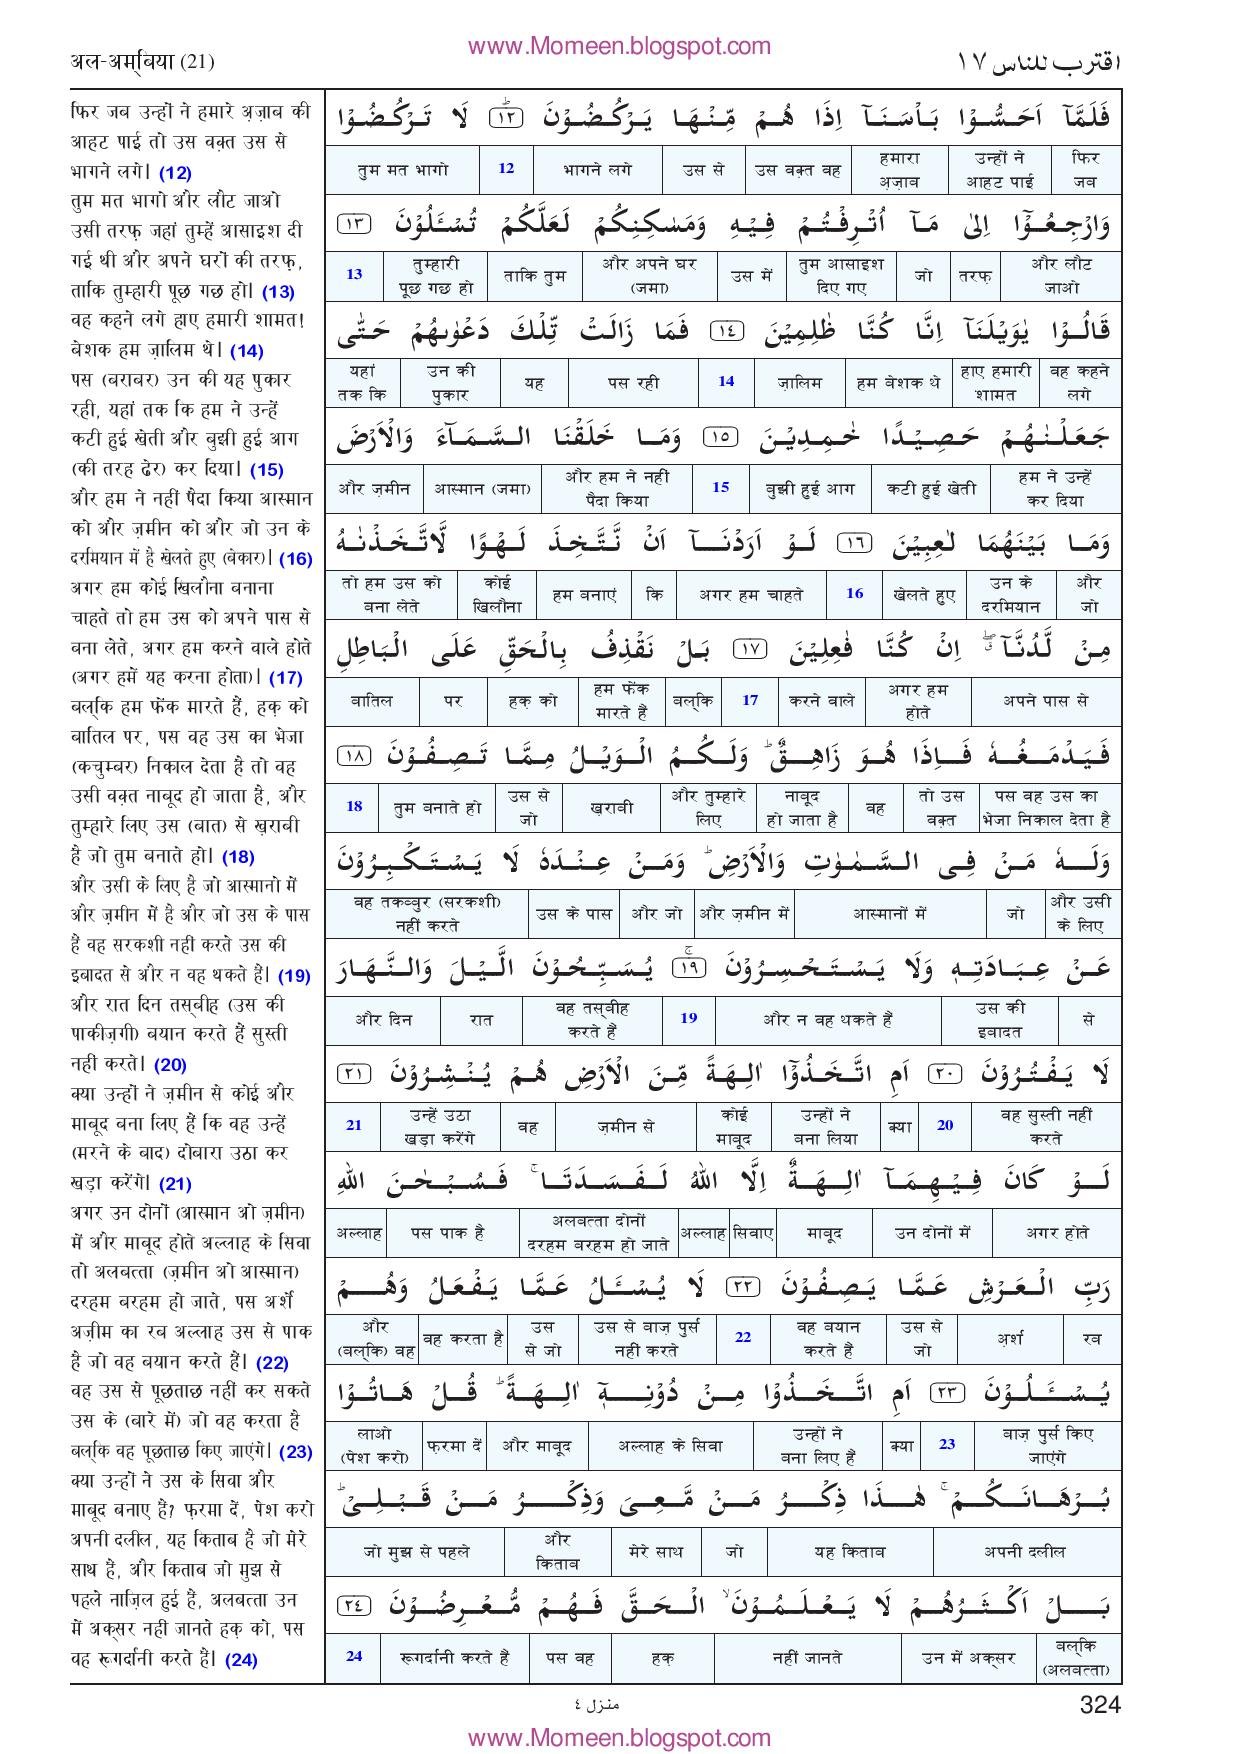 www.Momeen.blogspot.com
अल-अम्बिया (21)
اقترب للناس ١٧
फिर जब उन्हों ने हमारे अ़ज़ाब की
आहट पाई तो उस वक़्त उस से
भागने लगे। (12)
तुम मत भागो और लौट जाओ
उसी तरफ़ जहां तुम्हें आसाइश दी
गई थी और अपने घरों की तरफ़,
ताकि तुम्हारी पूछ गछ हो। (13)
वह कहने लगे हाए हमारी शामत!
बेशक हम ज़ालिम थे। (14)
पस (बराबर) उन की यह पुकार
रही, यहां तक कि हम ने उन्हें
कटी हुई खेती और बुझी हुई आग
(की तरह ढेर) कर दिया। (15)
और हम ने नहीं पैदा किया आस्मान
को और ज़मीन को और जो उन के
दरमियान में है खेलते हुए (बेकार)। (16)
अगर हम कोई खिलौना बनाना
चाहते तो हम उस को अपने पास से
बना लेते, अगर हम करने वाले होते
(अगर हमें यह करना होता)। (17)
बल्कि हम फेंक मारते हैं, हक़ को
बातिल पर, पस वह उस का भेजा
(कचुम्बर) निकाल देता है तो वह
उसी वक़्त नाबूद हो जाता है, और
तुम्हारे लिए उस (बात) से ख़राबी
है जो तुम बनाते हो। (18)
और उसी के लिए है जो आस्मानो में
और ज़मीन में है और जो उस के पास
हैं वह सरकशी नहीं करते उस की
इबादत से और न वह थकते हैं। (19)
और रात दिन तस्बीह (उस की
पाकीज़गी) बयान करते हैं सुस्ती
नहीं करते। (20)
क्या उन्हों ने ज़मीन से कोई और
माबूद बना लिए हैं कि वह उन्हें
(मरने के बाद) दोबारा उठा कर
खड़ा करेंगे। (21)
अगर उन दोनों (आस्मान ओ ज़मीन)
में और माबूद होते अल्लाह के सिवा
तो अलबत्ता (ज़मीन ओ आस्मान)
दरहम बरहम हो जाते, पस अर्शे
अज़ीम का रब अल्लाह उस से पाक
है जो वह बयान करते हैं। (22)
वह उस से पूछताछ नहीं कर सकते
उस के (बारे में) जो वह करता है
बल्कि वह पूछताछ किए जाएंगे। (23)
क्या उन्हों ने उस के सिवा और
माबूद बनाए हैं? फ़रमा दें, पेश करो
अपनी दलील, यह किताब है जो मेरे
साथ हैं, और किताब जो मुझ से
पहले नाज़िल हुई हैं, अलबत्ता उन
में अक्सर नहीं जानते हक़ को, पस
वह रूगर्दानी करते हैं। (24)
فَلَمَّآ اَحَسُّوْا بَاْسَنَآ اِذَا هُمْ مِّنْهَا يَرْكُضُوْنَ ؕ ١٢ لَا تَرْكُضُوْا
फिर जब उन्हों ने आहट पाई हमारा अ़ज़ाब उस वक़्त वह उस से भागने लगे 12 तुम मत भागो
وَارْجِعُوْٓا اِلٰى مَآ اُتْرِفْتُمْ فِيْهِ وَمَسٰكِنِكُمْ لَعَلَّكُمْ تُسْئَلُوْنَ ١٣
और लौट जाओ तरफ़ जो तुम आसाइश दिए गए उस में और अपने घर (जमा) ताकि तुम तुम्हारी पूछ गछ हो 13
قَالُوْا يٰوَيْلَنَآ اِنَّا كُنَّا ظٰلِمِيْنَ ١٤ فَمَا زَالَتْ تِّلْكَ دَعْوٰىهُمْ حَتّٰى
वह कहने लगे हाए हमारी शामत हम बेशक थे ज़ालिम 14 पस रही यह उन की पुकार यहां तक कि
جَعَلْنٰهُمْ حَصِيْدًا خٰمِدِيْنَ ١٥ وَمَا خَلَقْنَا السَّمَآءَ وَالْاَرْضَ
हम ने उन्हें कर दिया कटी हुई खेती बुझी हुई आग 15 और हम ने नहीं पैदा किया आस्मान (जमा) और ज़मीन
وَمَا بَيْنَهُمَا لٰعِبِيْنَ ١٦ لَوْ اَرَدْنَآ اَنْ نَّتَّخِذَ لَهْوًا لَّاتَّخَذْنٰهُ
और जो उन के दरमियान खेलते हुए 16 अगर हम चाहते कि हम बनाएं कोई खिलौना तो हम उस को बना लेते
مِنْ لَّدُنَّآ ۖ ق اِنْ كُنَّا فٰعِلِيْنَ ١٧ بَلْ نَقْذِفُ بِالْحَقِّ عَلَى الْبَاطِلِ
अपने पास से अगर हम होते करने वाले 17 बल्कि हम फेंक मारते हैं हक़ को पर बातिल
فَيَدْمَغُهٗ فَاِذَا هُوَ زَاهِقٌ ؕ وَلَكُمُ الْوَيْلُ مِمَّا تَصِفُوْنَ ١٨
पस वह उस का भेजा निकाल देता है तो उस वक़्त वह नाबूद हो जाता है और तुम्हारे लिए ख़राबी उस से जो तुम बनाते हो 18
وَلَهٗ مَنْ فِى السَّمٰوٰتِ وَالْاَرْضِ ؕ وَمَنْ عِنْدَهٗ لَا يَسْتَكْبِرُوْنَ
और उसी के लिए जो आस्मानों में और ज़मीन में और जो उस के पास वह तकब्बुर (सरकशी) नहीं करते
عَنْ عِبَادَتِهٖ وَلَا يَسْتَحْسِرُوْنَ ۚ ١٩ يُسَبِّحُوْنَ الَّيْلَ وَالنَّهَارَ
से उस की इबादत और न वह थकते हैं 19 वह तस्बीह करते हैं रात और दिन
لَا يَفْتُرُوْنَ ٢٠ اَمِ اتَّخَذُوْٓا اٰلِهَةً مِّنَ الْاَرْضِ هُمْ يُنْشِرُوْنَ ٢١
वह सुस्ती नहीं करते 20 क्या उन्हों ने बना लिया कोई माबूद ज़मीन से वह उन्हें उठा खड़ा करेंगे 21
لَوْ كَانَ فِيْهِمَآ اٰلِهَةٌ اِلَّا اللّٰهُ لَفَسَدَتَا ۚ فَسُبْحٰنَ اللّٰهِ
अगर होते उन दोनों में माबूद सिवाए अल्लाह अलबत्ता दोनों दरहम बरहम हो जाते पस पाक है अल्लाह
رَبِّ الْعَرْشِ عَمَّا يَصِفُوْنَ ٢٢ لَا يُسْئَلُ عَمَّا يَفْعَلُ وَهُمْ
रब अ़र्श उस से जो वह बयान करते हैं 22 उस से बाज़ पुर्स नहीं करते उस से जो वह करता है और (बल्कि) वह
يُسْئَلُوْنَ ٢٣ اَمِ اتَّخَذُوْا مِنْ دُوْنِهٖٓ اٰلِهَةً ؕ قُلْ هَاتُوْا
बाज़ पुर्स किए जाएंगे 23 क्या उन्हों ने बना लिए हैं अल्लाह के सिवा और माबूद फ़रमा दें लाओ (पेश करो)
بُرْهَانَكُمْ ۚ هٰذَا ذِكْرُ مَنْ مَّعِىَ وَذِكْرُ مَنْ قَبْلِىْ ؕ
अपनी दलील यह किताब जो मेरे साथ और किताब जो मुझ से पहले
بَلْ اَكْثَرُهُمْ لَا يَعْلَمُوْنَ ۙ الْحَقَّ فَهُمْ مُّعْرِضُوْنَ ٢٤
बल्कि (अलबत्ता) उन में अक्सर नहीं जानते हक़ पस वह रूगर्दानी करते हैं 24
منزل ٤
324
www.Momeen.blogspot.com